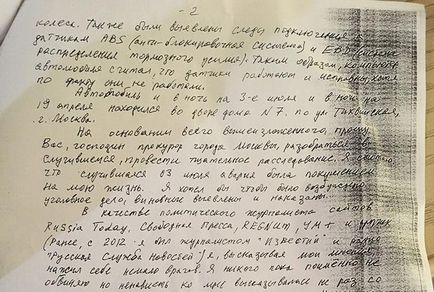 - 2
колеса. Также были выявлены следы подключения к
датчикам ABS (анти-блокировочная система) и EBD (система
распределения тормозного усилия). Таким образом, компьютер
автомобиля считал, что датчики работают и исправны, хотя
по факту они не работали.
Автомобиль и в ночь на 3-е июля и в ночь на
19 апреля находился во дворе дома N7. по ул. Тихвинская,
г. Москва.
На основании всего вышеизложенного, прошу
Вас, господин прокурор города Москвы, разобраться в
случившемся, провести тщательное расследование. Я считаю
что случившаяся 03 июля авария была покушением
на мою жизнь. Я хотел бы чтобы было возбуждено
уголовное дело, виновные выявлены и наказаны.
В качестве политического журналиста сайтов
Russia Today, Свободная Пресса, REGNUM, УМ+ и других
(Ранее, с 2012 я был журналистом "Известий" и радио
"Русская Служба Новостей") я, высказывая мои мнения,
нажил себе немало врагов. Я никого пока поименно не
обвиняю но ненависть ко мне высказывалась не раз со